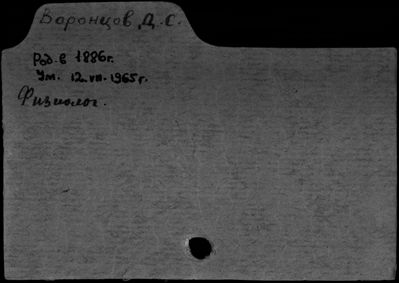 Воронцов, Д. С.
Род. в 1886 г.
Ум. 12.VII.1965 г.
Физиолог.